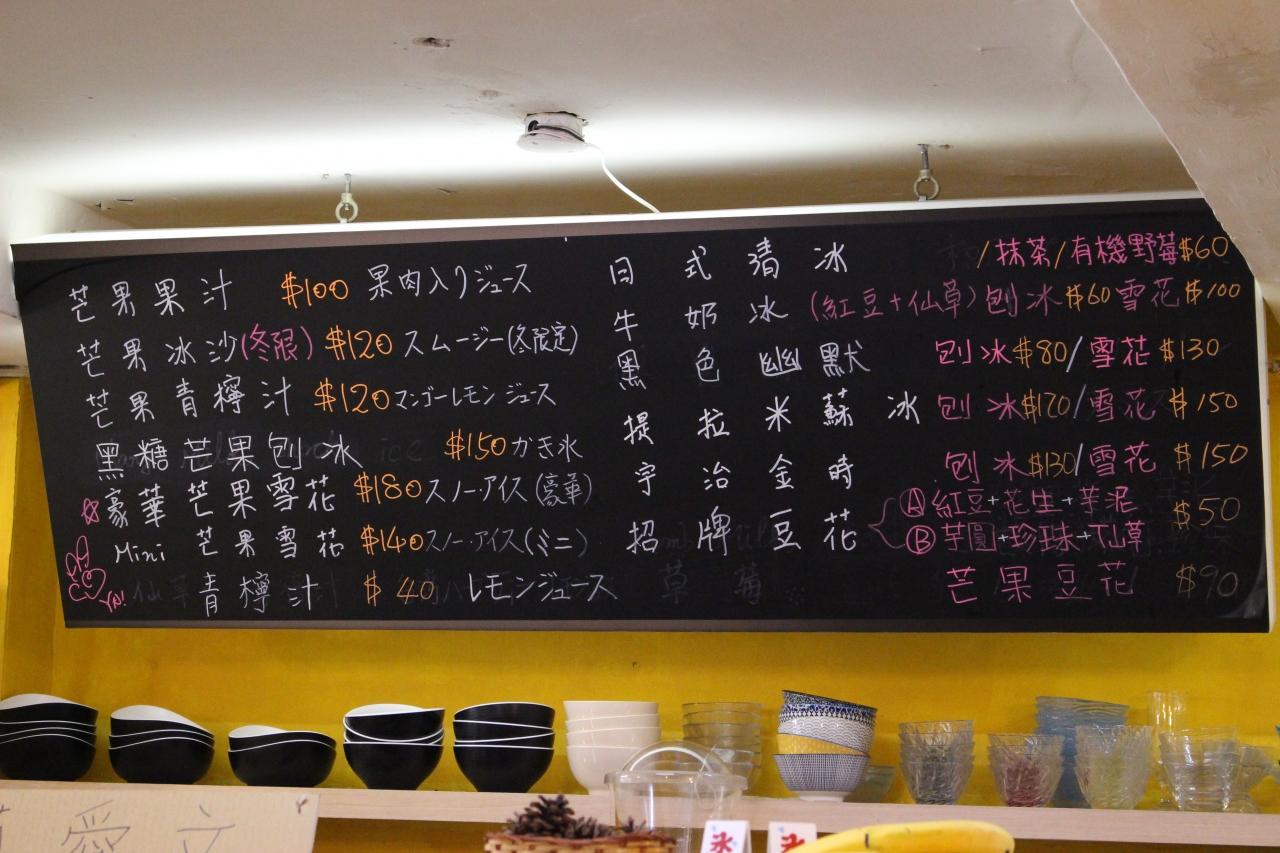 芒果果汁 $100 果肉入りジュース
芒果冰沙(冬限) $120 スムージー(冬限定)
芒果青檸汁 $120 マンゴーレモンジュース
黑糖芒果刨冰 $150 かき氷
豪華芒果雪花 $180 スノーアイス(豪華)
Mini 芒果雪花 $140 スノー・アイス(ミニ)
青檸汁 $40 レモンジュース
日式清冰 /抹茶/有機野莓 $60
牛奶冰 (紅豆+仙草) 刨冰 $60 雪花 $100
黑色幽默 刨冰 $80/雪花 $130
提拉米蘇冰 刨冰 $120/雪花 $150
宇治金時 刨冰 $130/雪花 $150
招牌豆花 Ⓐ 紅豆+花生+芋泥 $50
Ⓑ 芋圓+珍珠+仙草
芒果豆花 $90
草莓
愛